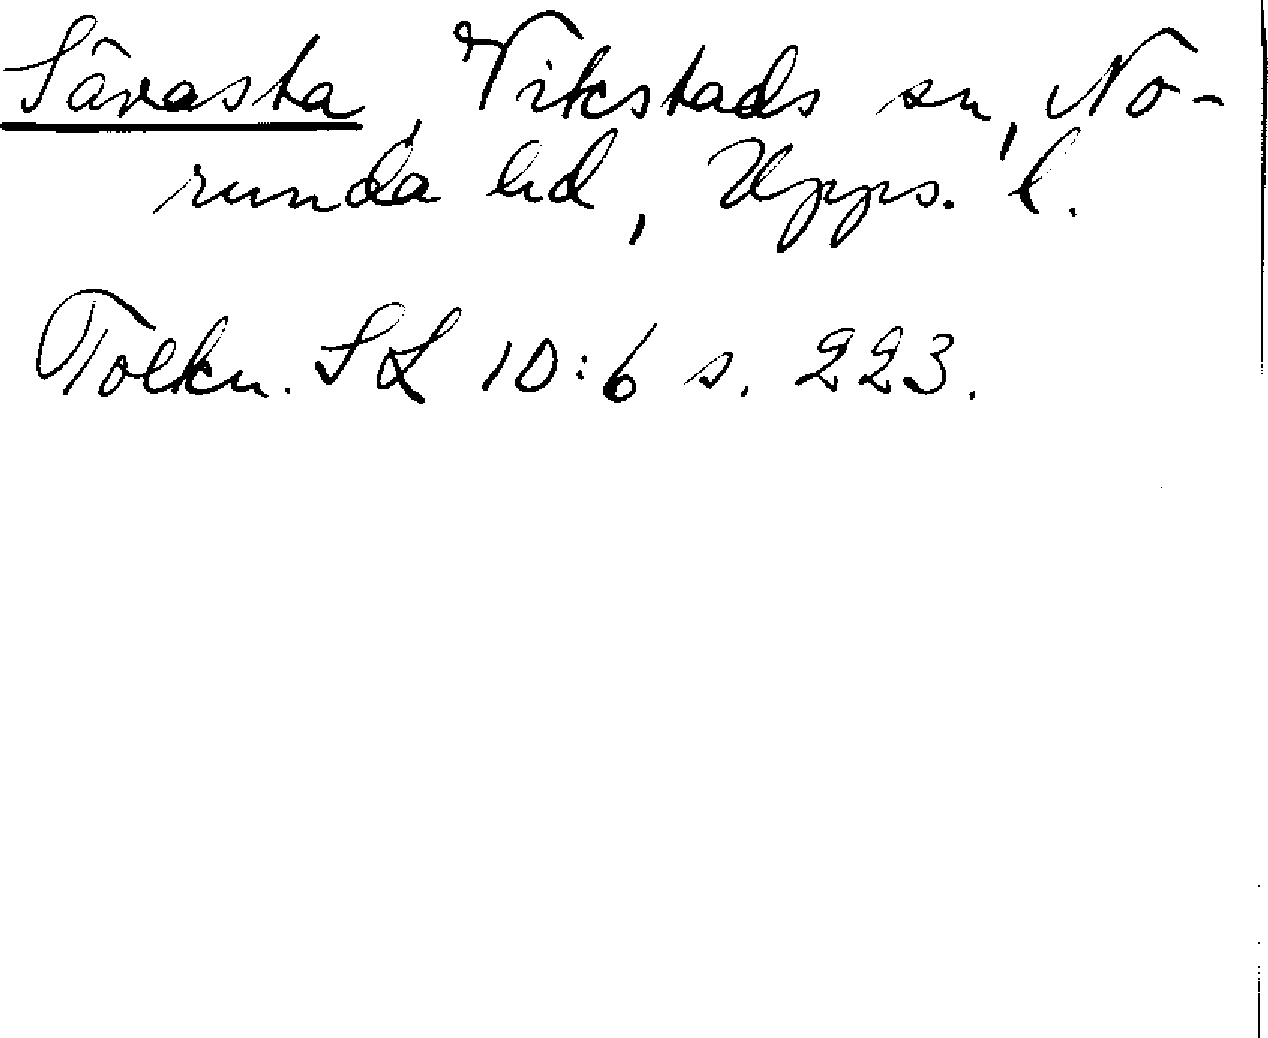 Sävasta, Vikstads sn, No-
runda hd, Upps. l.
Tolkn. SL 10:6 s. 223.